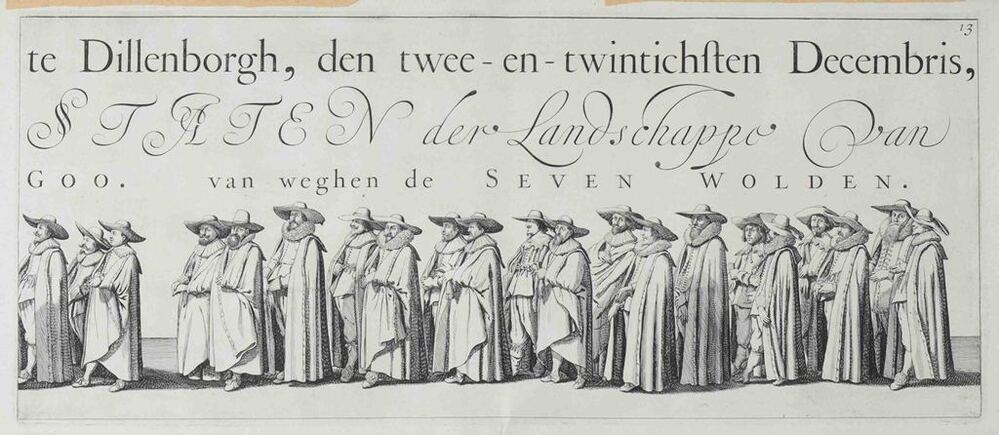 13
te Dillenborgh, den twee-en-twintichſten Decembris,
STATEN der Landschappe van
GOO. van weghen de SEVEN WOLDEN.